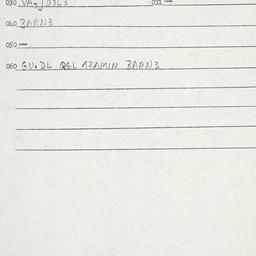 030 VA-J0363 031 —
040 BARN3
050 —
060 GU.DL QGL AZAMIN BARN3